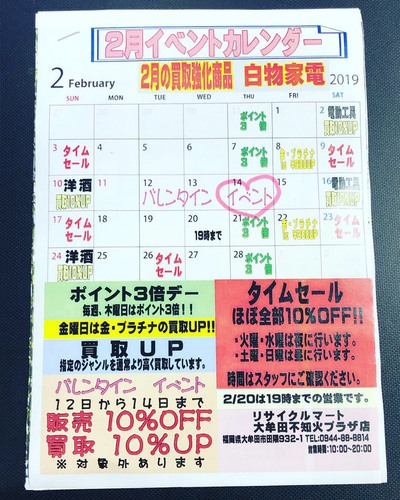 2月イベントカレンダー
2月の買取強化商品 白物家電
2 February 2019
SUN MON TUE WED THU FRI SAT
1 2 電動工具
ポイント3倍
3 タイムセール 4 5 6 7 ポイント3倍 8 金・プラチナ 9 タイムセール
10 洋酒 買取UP 11 12 13 14 15 16 電動工具
バレンタイン イベント
17 タイムセール 18 19 20 19時まで 21 ポイント3倍 22 金・プラチナ 23 タイムセール
24 洋酒 買取UP 25 26 タイムセール 27 28 ポイント3倍
ポイント3倍デー
毎週、木曜日はポイント3倍!!
金曜日は金・プラチナの買取UP!!
買取UP
指定のジャンルを通常より高く買取しています。
バレンタイン イベント
12日から14日まで
販売 10%OFF
買取 10%UP
※対象外あります
タイムセール
ほぼ全部10%OFF!!
・火曜・水曜は夜に行います。
・土曜・日曜は昼に行います。
時間はスタッフにご確認ください。
2/20は19時までの営業です。
リサイクルマート
大牟田不知火プラザ店
福岡県大牟田市田隈932-1 TEL:0944-88-8814
営業時間:10:00~20:00